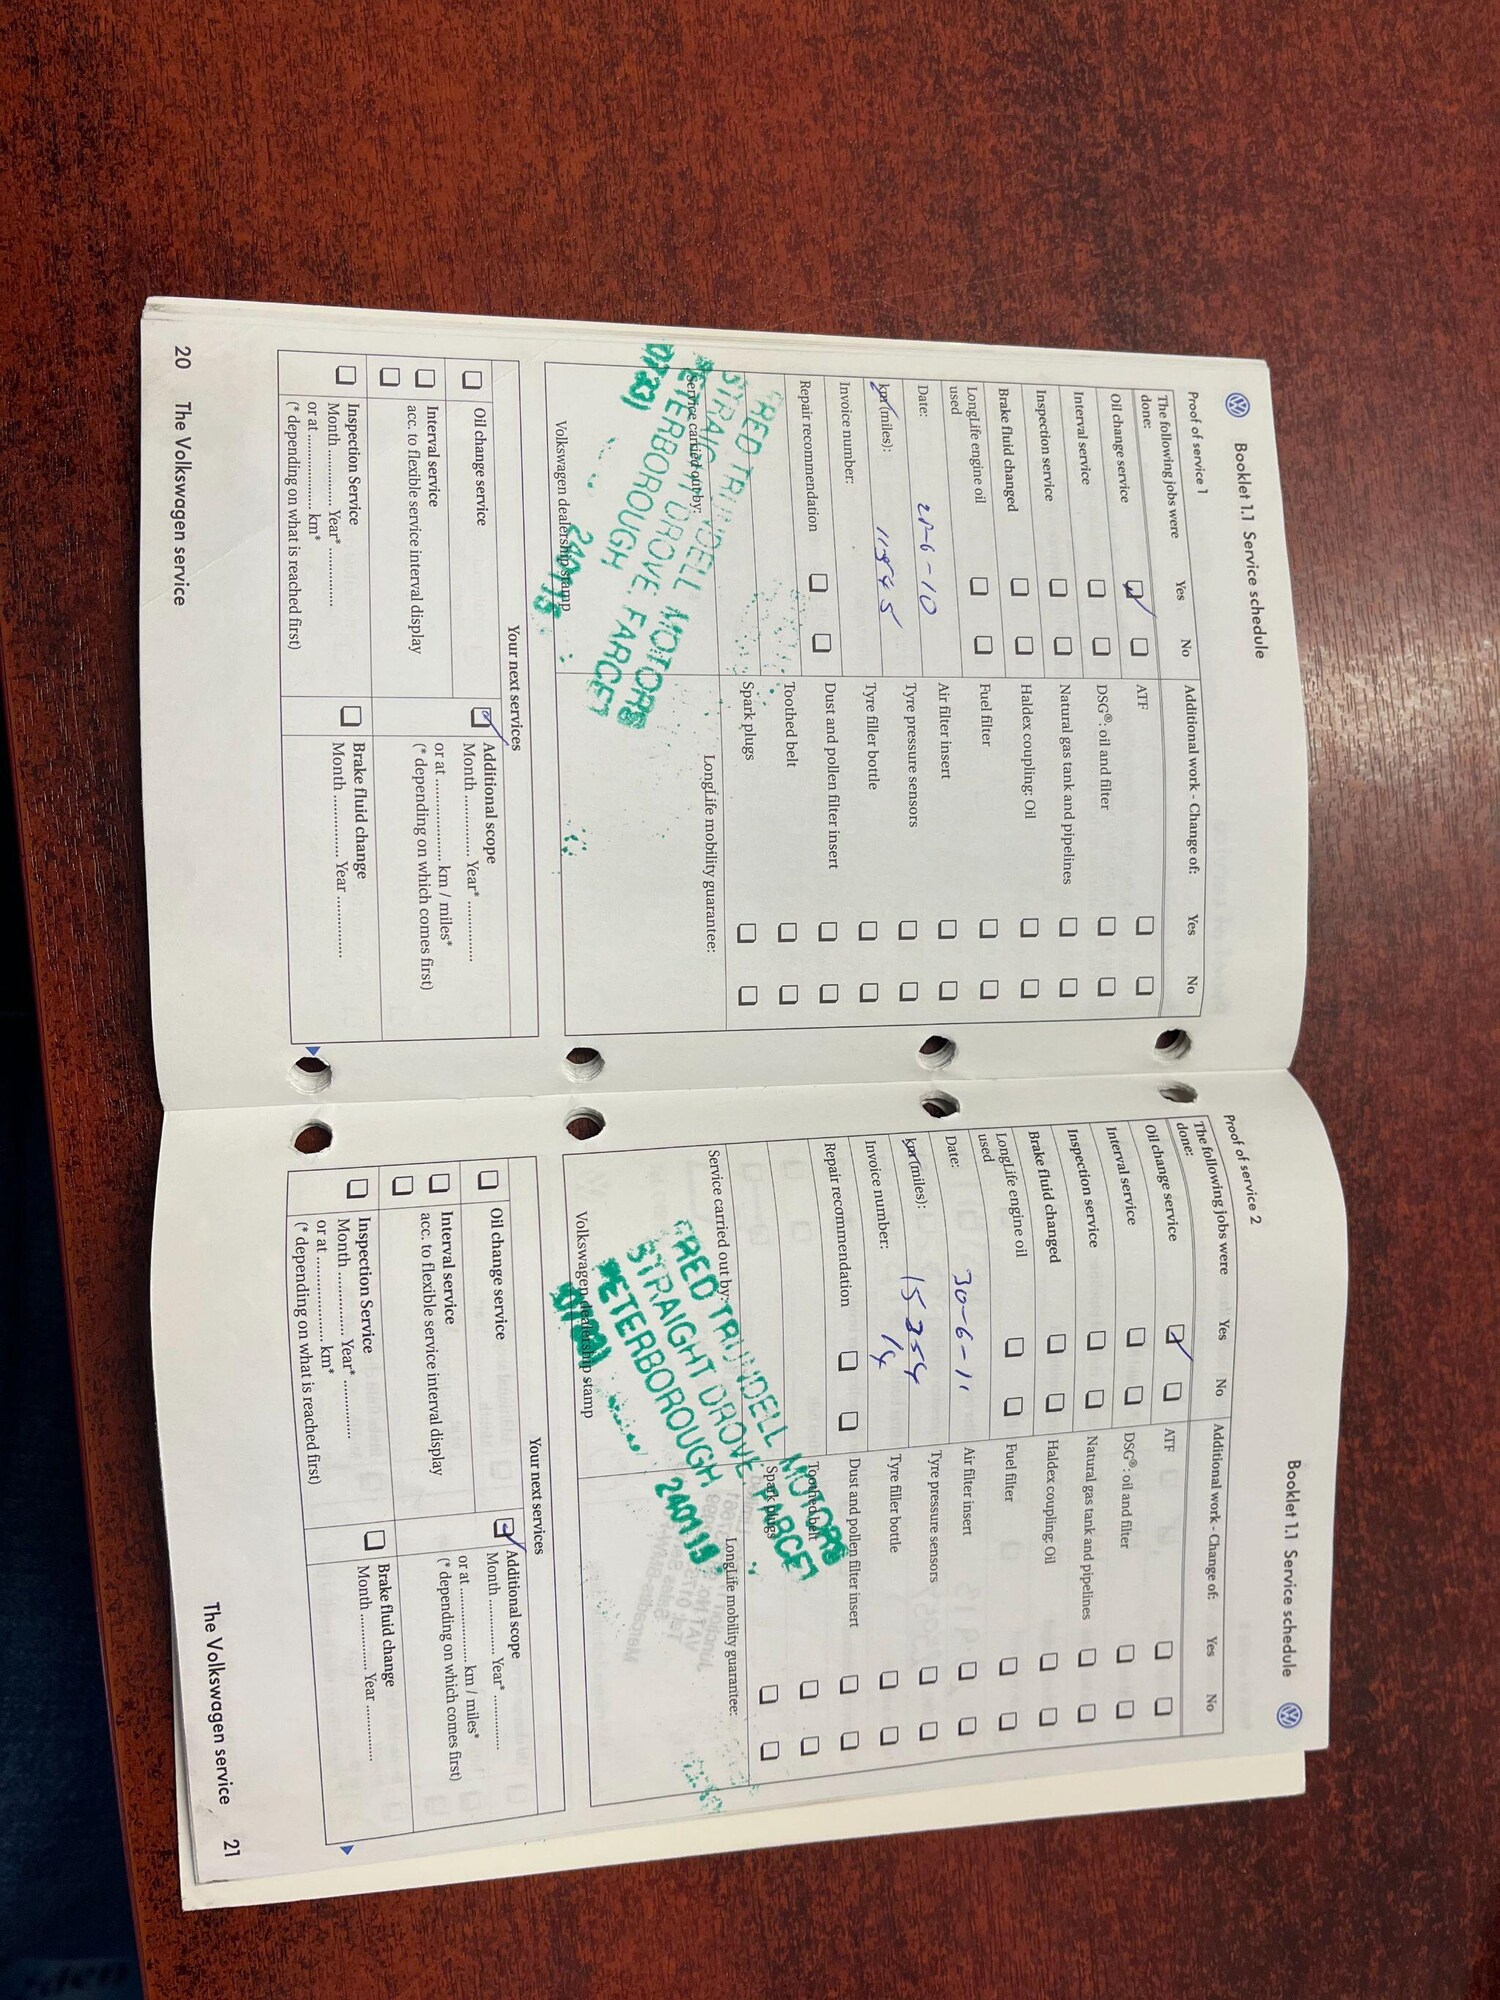 Booklet 1.1 Service schedule
Proof of service 1
The following jobs were done:
Yes
No
Additional work - Change of:
Yes
No
Oil change service
ATF
Interval service
DSG®: oil and filter
Inspection service
Natural gas tank and pipelines
Brake fluid changed
Haldex coupling: Oil
LongLife engine oil used
Fuel filter
Air filter insert
Date: -6-10
Tyre pressure sensors
km (miles):
Tyre filler bottle
Invoice number:
Dust and pollen filter insert
Repair recommendation
Toothed belt
Spark plugs
Service carried out by:
LongLife mobility guarantee:
FRED TRUNDELL MOTORS
STRAIGHT DROVE, FARCET
PETERBOROUGH
01733) 240119
Volkswagen dealership stamp
Your next services
Oil change service
Additional scope
Month ............ Year* ............
or at ............ km / miles*
(* depending on which comes first)
Interval service
acc. to flexible service interval display
Inspection Service
Month ............ Year* ............
or at ............ km*
(* depending on what is reached first)
Brake fluid change
Month ............ Year ............
20 The Volkswagen service
Booklet 1.1 Service schedule
Proof of service 2
The following jobs were done:
Yes
No
Additional work - Change of:
Yes
No
Oil change service
ATF
Interval service
DSG®: oil and filter
Inspection service
Natural gas tank and pipelines
Brake fluid changed
Haldex coupling: Oil
LongLife engine oil used
Fuel filter
Air filter insert
Date: 30-6-11
Tyre pressure sensors
km (miles): 15354
Tyre filler bottle
Invoice number: 14
Dust and pollen filter insert
Repair recommendation
Toothed belt
Spark plugs
Service carried out by:
LongLife mobility guarantee:
FRED TRUNDELL MOTORS
STRAIGHT DROVE FARCET
PETERBOROUGH
240119
Volkswagen dealership stamp
Your next services
Oil change service
Additional scope
Month ............ Year* ............
or at ............ km / miles*
(* depending on which comes first)
Interval service
acc. to flexible service interval display
Inspection Service
Month ............ Year* ............
or at ............ km*
(* depending on what is reached first)
Brake fluid change
Month ............ Year ............
The Volkswagen service 21